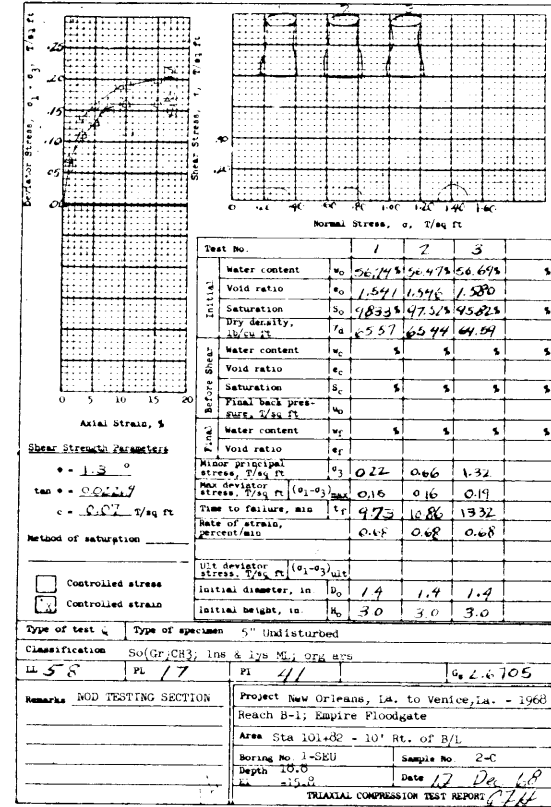 Deviator Stress, σ1 - σ3, T/sq ft
.25
.20
.15
.10
.05
0
0 5 10 15 20
Axial Strain, %
Shear Stress, τ, T/sq ft
1 2 3
.40
.20
0 .20 .40 .60 .80 1.00 1.20 1.40 1.60
Normal Stress, σ, T/sq ft
Shear Strength Parameters
φ = 1.3 °
tan φ = 0.0229
c = 0.07 T/sq ft
Method of saturation
Controlled stress
Controlled strain
Test No. 1 2 3
Initial
Water content wo 56.74% 56.47% 56.69% %
Void ratio eo 1.541 1.546 1.580
Saturation So 98.33% 97.52% 95.82% %
Dry density, lb/cu ft γd 65.57 65.44 64.59
Before Shear
Water content wc % % % %
Void ratio ec
Saturation Sc % % % %
Final back pressure, T/sq ft uo
Final
Water content wf % % % %
Void ratio ef
Minor principal stress, T/sq ft σ3 0.22 0.66 1.32
Max deviator stress, T/sq ft (σ1-σ3)max 0.15 0.16 0.19
Time to failure, min tf 9.73 10.86 13.32
Rate of strain, percent/min 0.68 0.68 0.68
Ult deviator stress, T/sq ft (σ1-σ3)ult
Initial diameter, in Do 1.4 1.4 1.4
Initial height, in. Ho 3.0 3.0 3.0
Type of test Q Type of specimen 5" Undisturbed
Classification So(Gr)CH3; lns & lys ML; org ars
LL 58 PL 17 PI 41 Gs 2.6705
Remarks NOD TESTING SECTION
Project New Orleans, La. to Venice, La. - 1968
Reach B-1; Empire Floodgate
Area Sta 101+82 - 10' Rt. of B/L
Boring No. 1-SEU Sample No. 2-C
Depth 18.8
El -15.8 Date 17 Dec 68
TRIAXIAL COMPRESSION TEST REPORT